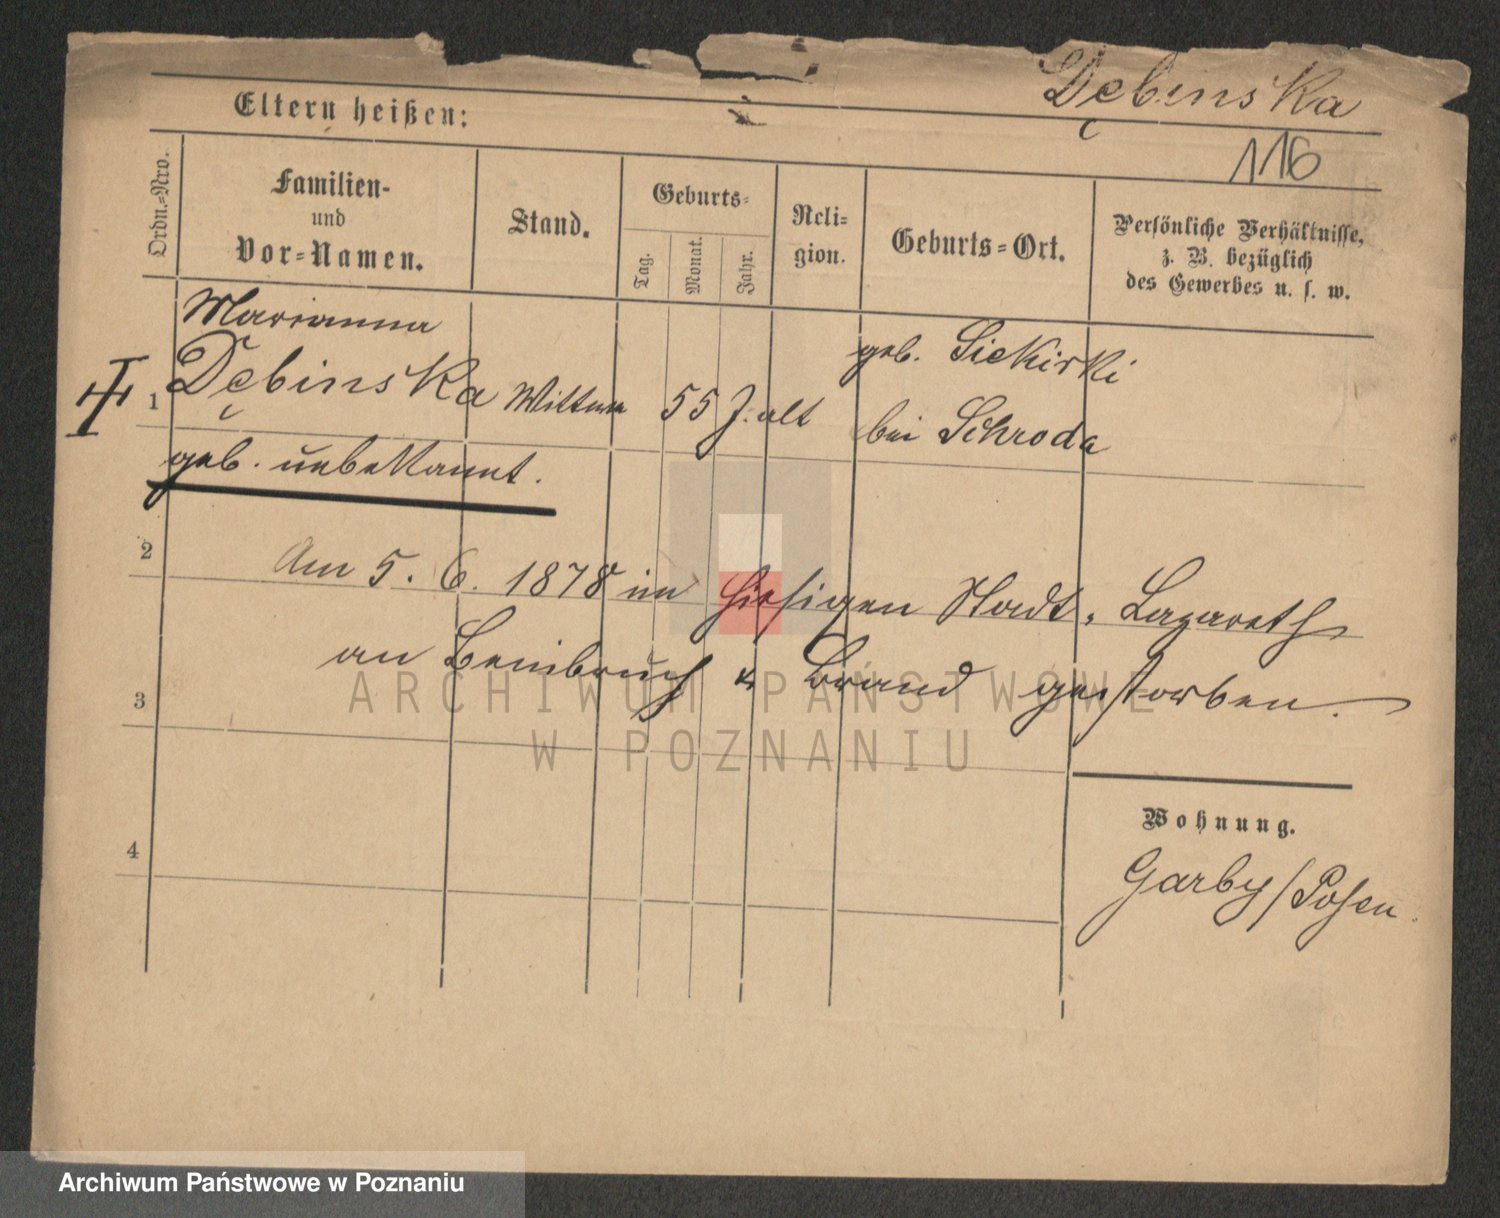 Dębinska
Eltern heißen:
116
Ordn.-Nro.
Familien-
und
Vor-Namen.
Stand.
Geburts-
Tag.
Monat.
Jahr.
Reli-
gion.
Geburts-Ort.
Persönliche Verhältnisse,
z. B. bezüglich
des Gewerbes u. s. w.
Marianna
1 Dębinska Wittwe 55 J. alt
geb. Siekirki
bei Schroda
geb. unbekannt.
2
Am 5. 6. 1878 im hiesigen Stadt-Lazareth
an Beinbruch & Brand gestorben.
3
4
Wohnung.
Garby/Posen.
ARCHIWUM PAŃSTWOWE
W POZNANIU
Archiwum Państwowe w Poznaniu